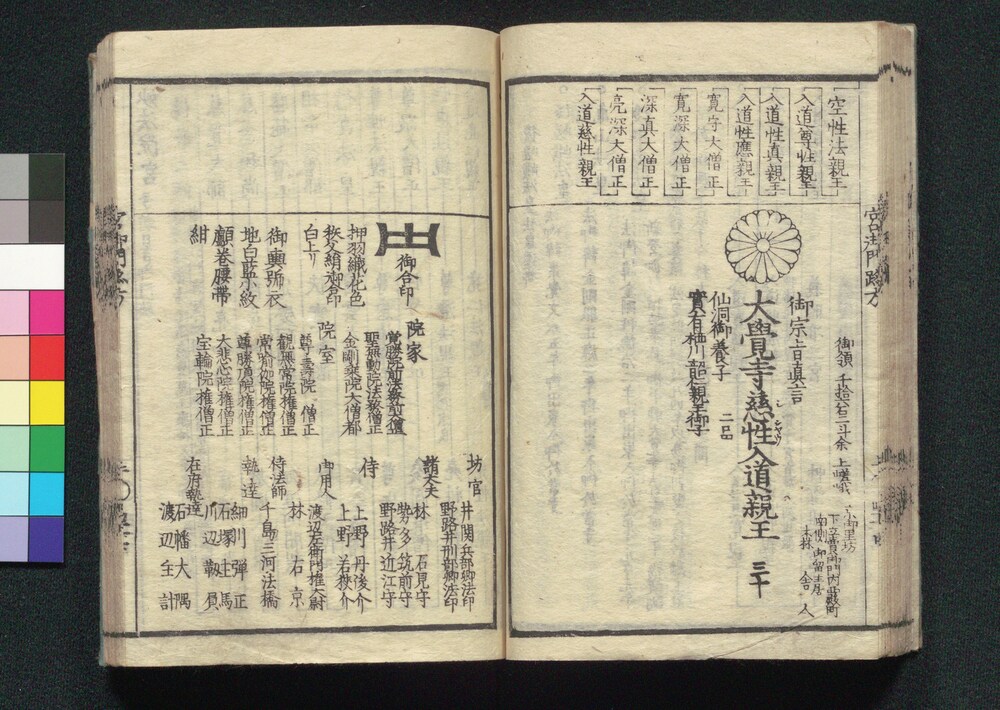 空性法親王
入道尊性親王
入道性真親王
入道性應親王
寛守大僧正
寛深大僧正
深真大僧正
亮深大僧正
入道慈性親王
御領 千拾六石三斗余 上嵯峨
御里坊
下立賣御門内
御留主居
森 舎人
御宗旨真言
大覺寺慈性入道親王 三十
二品
仙洞御養子
實有栖川韶仁親王御子
宮御門跡方
御合印
押羽織花色
秩父絹御合印
白上リ
御輿舁衣
地白藍小紋
顱巻腰帯
紺
院家
覚勝院前法務前大僧正
聖無動院法務僧正
金剛乗院大僧都
院室
尊壽院 僧正
観無常院権僧正
常瑜伽院権僧正
尊勝頂院権僧正
大悲心院権僧正
宝輪院権僧正
坊官
井関兵部卿法印
野路井刑部卿法印
諸大夫
林 石見守
勢多筑前守
野路井近江守
侍
上野丹後介
上野若狭介
御用人
渡辺左衛門権大尉
林 右京
侍法師
千島三河法橋
執達
細川弾正
石塚主馬
川辺靱負
在府執達
石幡大隅
渡辺主計